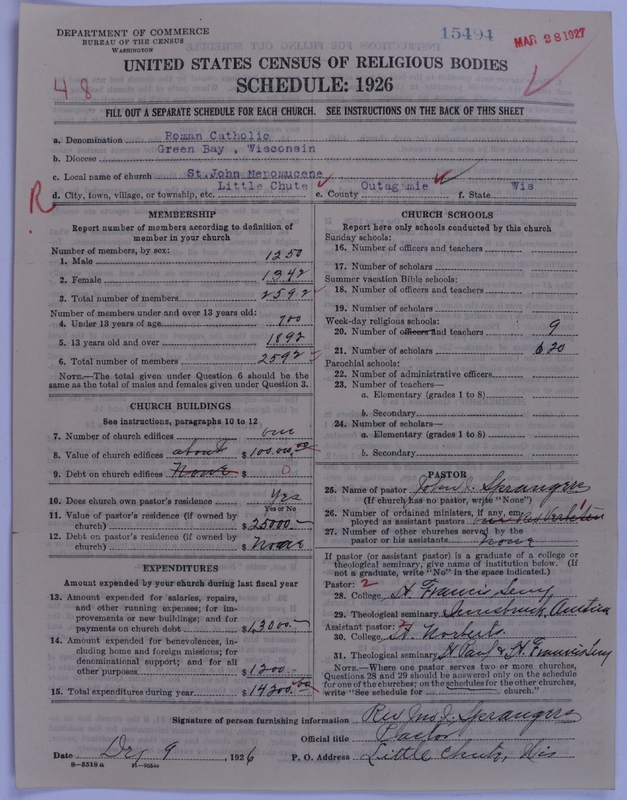 DEPARTMENT OF COMMERCE
BUREAU OF THE CENSUS
WASHINGTON
15494
MAR 28 1927
UNITED STATES CENSUS OF RELIGIOUS BODIES
SCHEDULE: 1926
48
FILL OUT A SEPARATE SCHEDULE FOR EACH CHURCH. SEE INSTRUCTIONS ON THE BACK OF THIS SHEET
a. Denomination Roman Catholic
b. Diocese Green Bay , Wisconsin
c. Local name of church St.John Nepomucene
d. City, town, village, or township, etc. Little Chute e. County Outagamie f. State Wis
R
MEMBERSHIP
Report number of members according to definition of
member in your church
Number of members, by sex:
1. Male 1250
2. Female 1342
3. Total number of members 2592
Number of members under and over 13 years old:
4. Under 13 years of age 700
5. 13 years old and over 1892
6. Total number of members 2592
NOTE.—The total given under Question 6 should be
same as the total of males and females given under Question 3.
CHURCH BUILDINGS
See instructions, paragraphs 10 to 12
7. Number of church edifices one
8. Value of church edifices about $100.000,00
9. Debt on church edifices None $ 0
10. Does church own pastor's residence Yes
Yes or No
11. Value of pastor's residence (if owned by
church) $25000.-
12. Debt on pastor's residence (if owned by
church) $None
EXPENDITURES
Amount expended by your church during last fiscal year
13. Amount expended for salaries, repairs,
and other running expenses; for im-
provements or new buildings; and for
payments on church debt $13000.-
14. Amount expended for benevolences, in-
cluding home and foreign missions; for
denominational support; and for all
other purposes $1200.-
15. Total expenditures during year $14200.00
CHURCH SCHOOLS
Report here only schools conducted by this church
Sunday schools:
16. Number of officers and teachers
17. Number of scholars
Summer vacation Bible schools:
18. Number of officers and teachers
19. Number of scholars
Week-day religious schools:
20. Number of officers and teachers 9
21. Number of scholars 620
Parochial schools:
22. Number of administrative officers
23. Number of teachers—
a. Elementary (grades 1 to 8)
b. Secondary
24. Number of scholars—
a. Elementary (grades 1 to 8)
b. Secondary
PASTOR
25. Name of pastor John J. Sprangers
(If church has no pastor, write "None")
26. Number of ordained ministers, if any, em-
ployed as assistant pastors 1
27. Number of other churches served by the
pastor or his assistants None
If pastor (or assistant pastor) is a graduate of a college or
theological seminary, give name of institution below. (If
not a graduate, write "No" in the space indicated.)
Pastor: 2
28. College St. Francis Semy
29. Theological seminary Innsbruck, Austria
Assistant pastor:
30. College St. Norberts
31. Theological seminary St Paul & St. Francis Semy
NOTE.—Where one pastor serves two or more churches,
Questions 28 and 29 should be answered only on the schedule
for one of the churches; on the schedules for the other churches,
write "See schedule for church."
Signature of person furnishing information Rev Jno. J. Sprangers
Official title Pastor
Date Dec 9, 1926 P. O. Address Little Chute, Wis
8—5318a